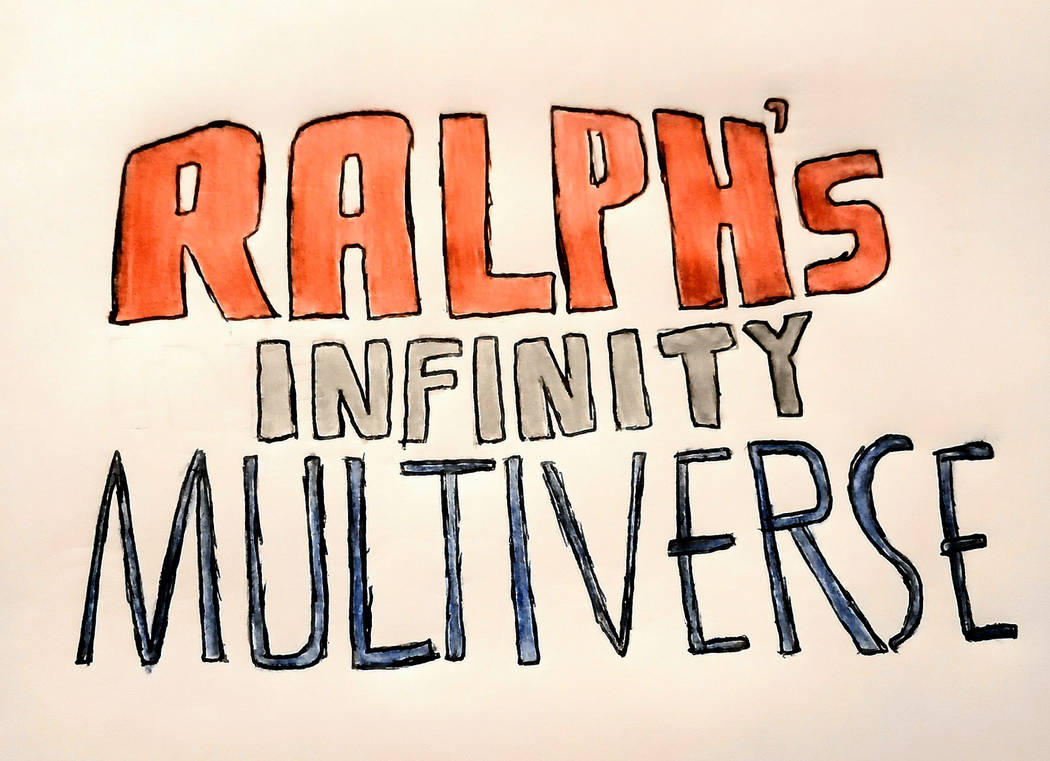 RALPH's
INFINITY
MULTIVERSE